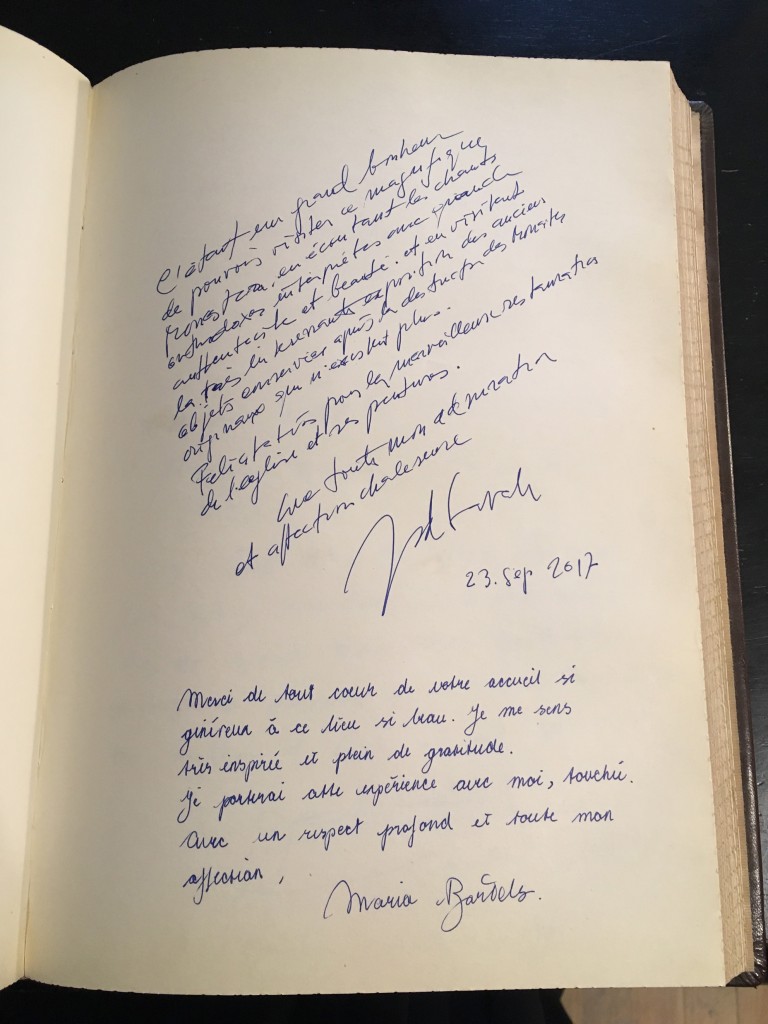 C'était un grand bonheur
de pouvoir visiter ce magnifique
en écoutant les chants
orthodoxes interprétés avec grande
authenticité et beauté. et en visitant
la très exposition des anciens
objets après la destruction des
originaux qui n'existent plus.
pour la merveilleuse restauration
de l'église et ses peintures.
Avec toute mon admiration
et affection chaleureuse
23. Sep 2017
Merci de tout coeur de votre accueil si
généreux à ce lieu si beau. Je me sens
très inspirée et plein de gratitude.
Je porterai cette expérience avec moi, touchée.
Avec un respect profond et toute mon
affection,
Maria